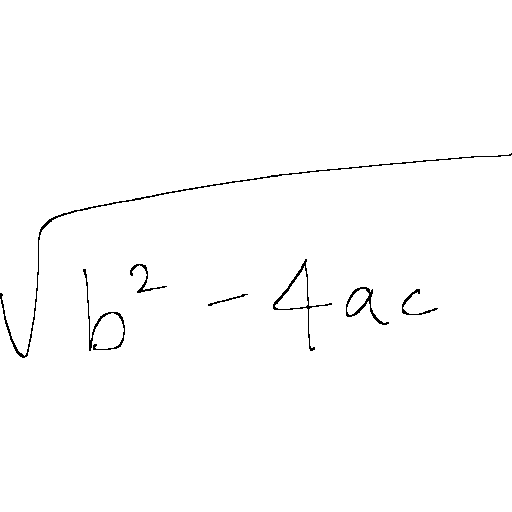 √(b² - 4ac)